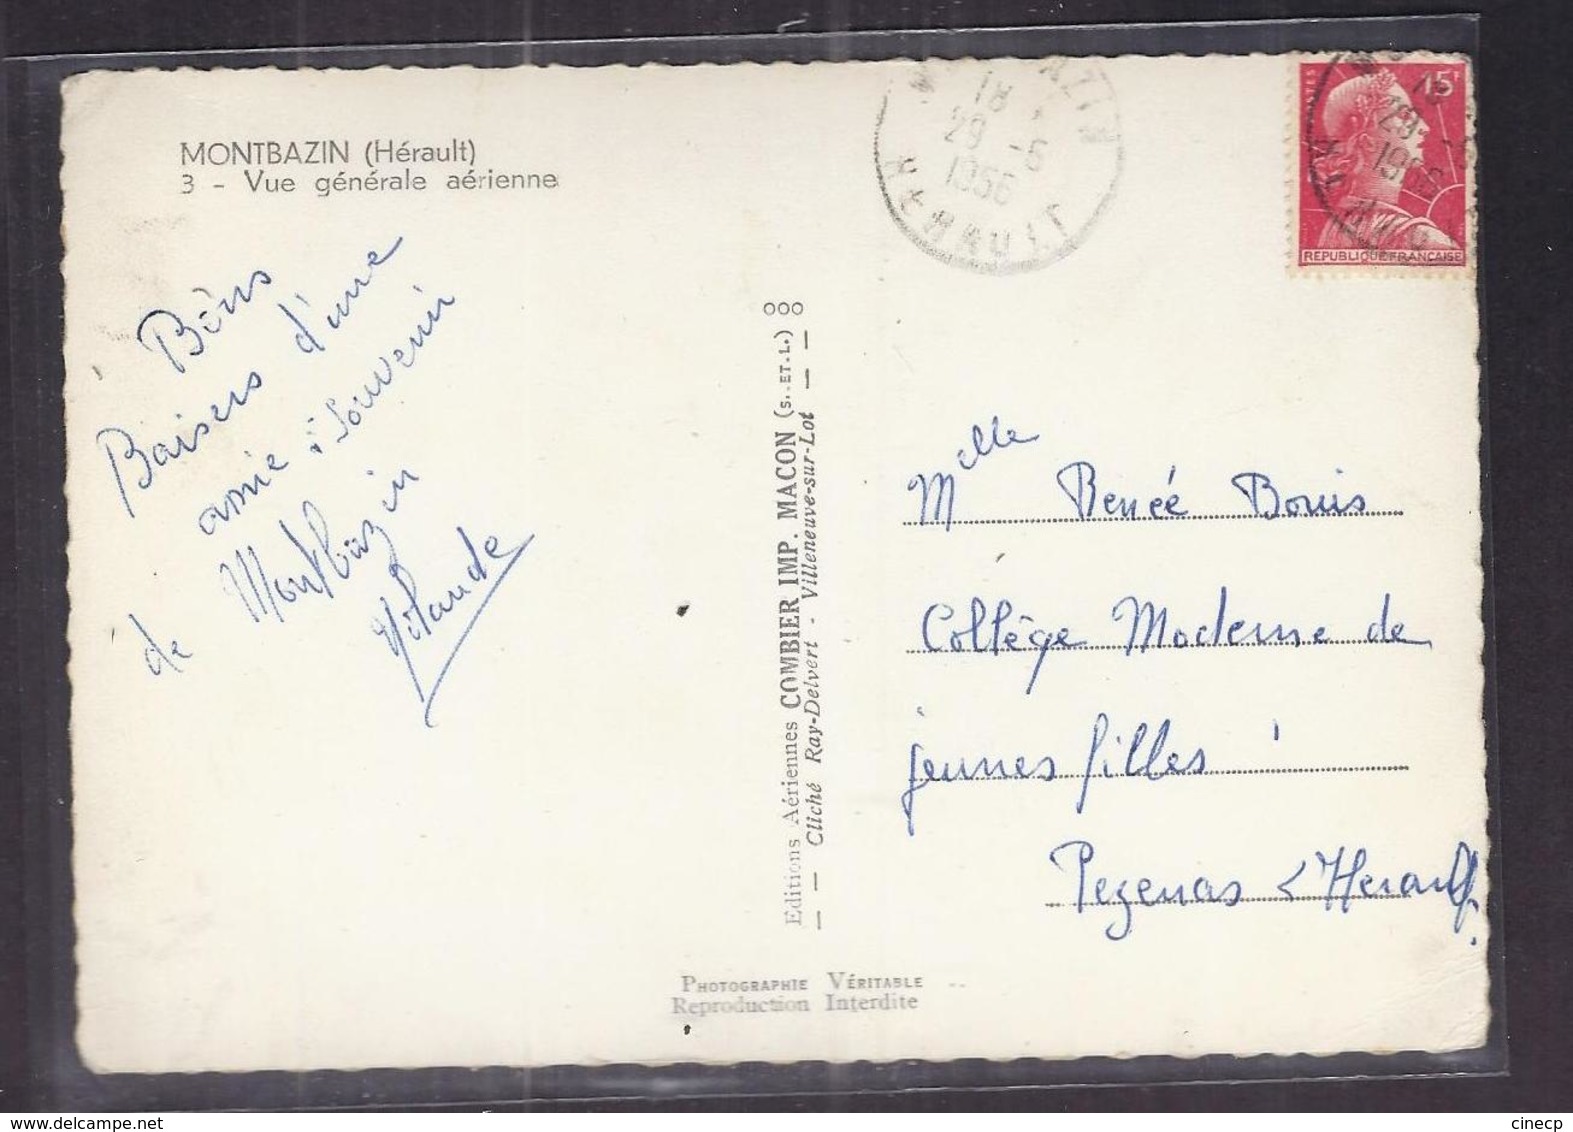 MONTBAZIN (Hérault)
3 - Vue générale aérienne
Bons
Baisers d'une
amie : souvenir
de Montbazin
Yolande
ooo
Editions Aériennes COMBIER IMP. MACON (S.-ET-L.)
— — Cliché Ray-Delvert - Villeneuve-sur-Lot — —
18
29 -5
1956
HERAULT
POSTES
15F
REPUBLIQUE FRANÇAISE
Melle Renée Bouis
Collège Moderne de
jeunes filles
Pezenas L'Herault.
PHOTOGRAPHIE VÉRITABLE
Reproduction Interdite
cinecp